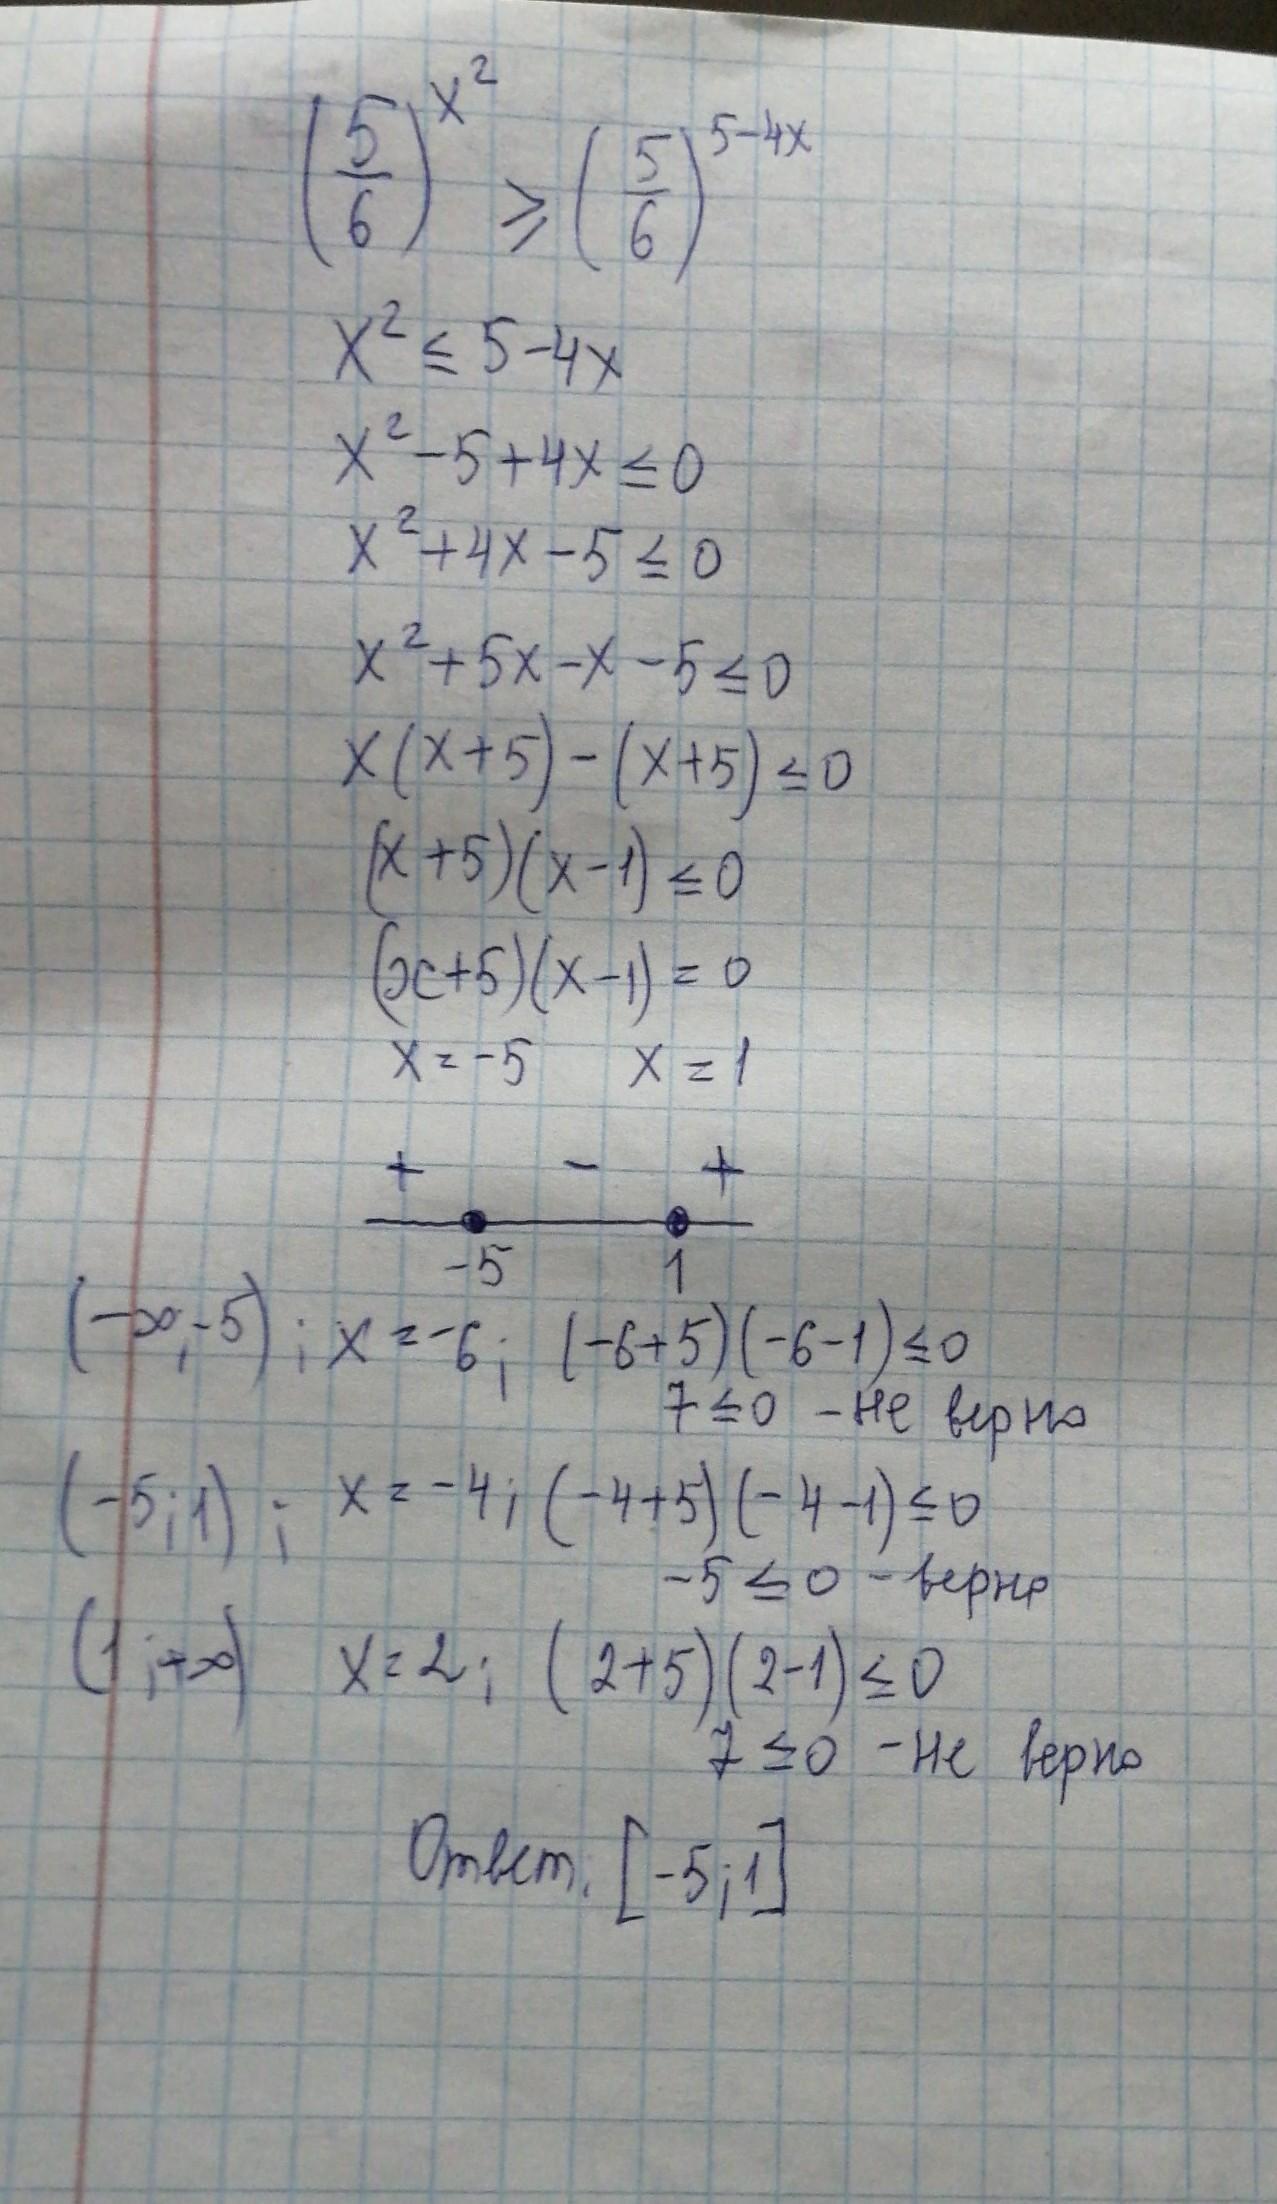 (5/6)^x² ⩾ (5/6)^5-4x
x² ≤ 5-4x
x² -5+4x ≤ 0
x² +4x-5 ≤ 0
x² +5x-x-5 ≤ 0
x(x+5)-(x+5) ≤ 0
(x+5)(x-1) ≤ 0
(x+5)(x-1) = 0
x = -5 x = 1
+ - +
-5 1
(-∞;-5); x = -6; (-6+5)(-6-1) ≤ 0
7 ≤ 0 - не верно
(-5;1); x = -4; (-4+5)(-4-1) ≤ 0
-5 ≤ 0 - верно
(1;+∞) x = 2; (2+5)(2-1) ≤ 0
7 ≤ 0 - не верно
Ответ. [-5;1]